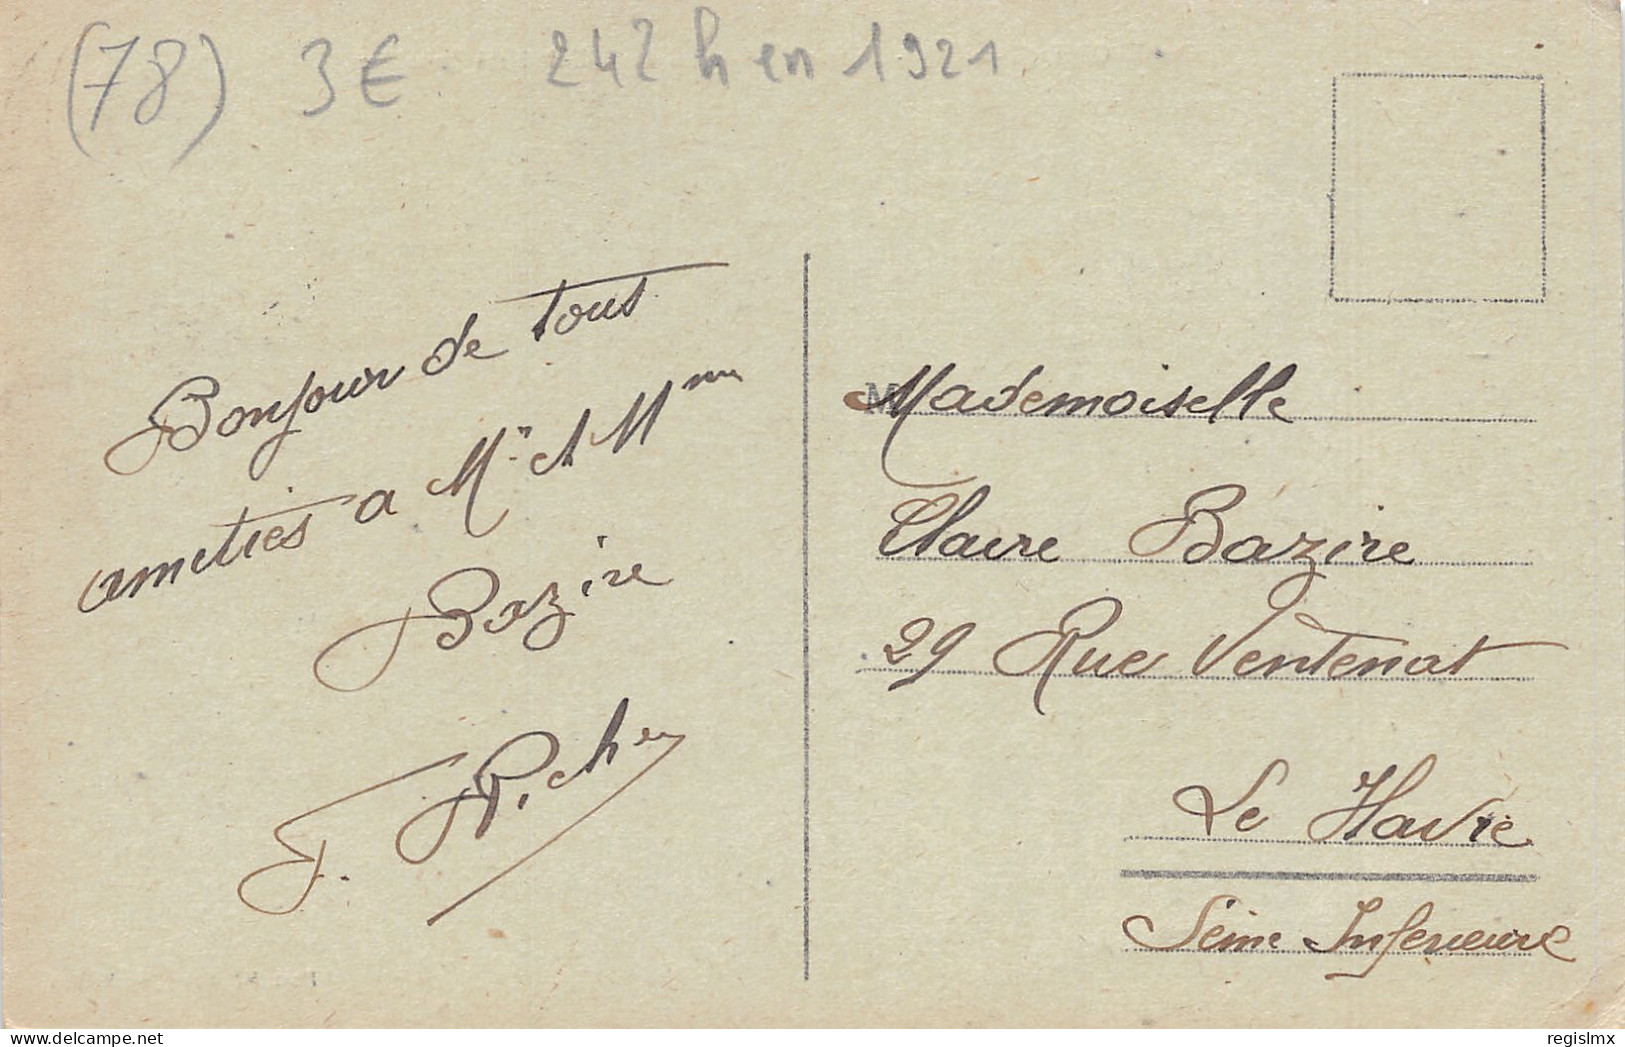 (78) 3€ 242 h en 1921
Bonjour de tous
amities a Mr et Mme
Bazire
F.
M
Mademoiselle
Claire Bazire
29 Rue Ventenat
Le Havre
Seine Inferieure
regislmx